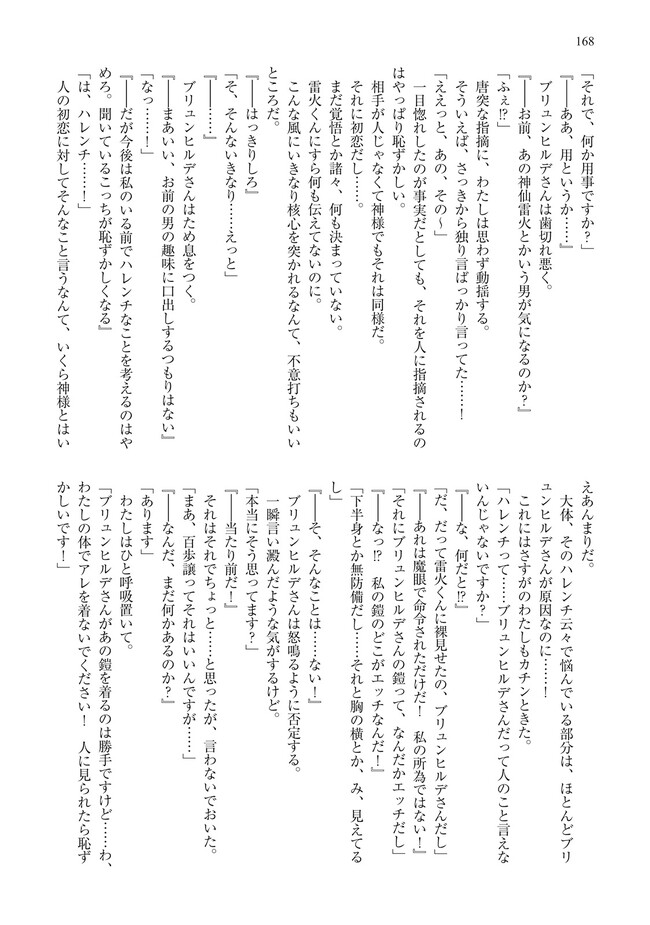 168
「それで、何か用事ですか?」
『――ああ、用というか……』
ブリュンヒルデさんは歯切れ悪く。
『――お前、あの神仙雷火とかいう男が気になるのか?』
「ふぇ!?」
唐突な指摘に、わたしは思わず動揺する。
そういえば、さっきから独り言ばっかり言ってた……!
「ええっと、あの、その～」
一目惚れしたのが事実だとしても、それを人に指摘されるの
はやっぱり恥ずかしい。
相手が人じゃなくて神様でもそれは同様だ。
それに初恋だし……。
まだ覚悟とか諸々、何も決まっていない。
雷火くんにすら何も伝えてないのに。
こんな風にいきなり核心を突かれるなんて、不意打ちもいい
ところだ。
『――はっきりしろ』
「そ、そんないきなり……えっと」
『――……』
ブリュンヒルデさんはため息をつく。
『――まあいい、お前の男の趣味に口出しするつもりはない』
「なっ……!」
『――だが今後は私のいる前でハレンチなことを考えるのはや
めろ。聞いているこっちが恥ずかしくなる』
「は、ハレンチ……!」
人の初恋に対してそんなこと言うなんて、いくら神様とはい
えあんまりだ。
大体、そのハレンチ云々で悩んでいる部分は、ほとんどブリ
ュンヒルデさんが原因なのに……!
これにはさすがのわたしもカチンときた。
「ハレンチって……ブリュンヒルデさんだって人のこと言えな
いんじゃないですか?」
『――な、何だと!?』
「だ、だって雷火くんに裸見せたの、ブリュンヒルデさんだし」
『――あれは魔眼で命令されただけだ! 私の所為ではない!』
「それにブリュンヒルデさんの鎧って、なんだかエッチだし」
『――なっ!? 私の鎧のどこがエッチなんだ!』
「下半身とか無防備だし……それと胸の横とか、み、見えてる
し」
『――そ、そんなことは……ない!』
ブリュンヒルデさんは怒鳴るように否定する。
一瞬言い澱んだような気がするけど。
「本当にそう思ってます?」
『――当たり前だ!』
それはそれでちょっと……と思ったが、言わないでおいた。
「まあ、百歩譲ってそれはいいんですが……」
『――なんだ、まだ何かあるのか?』
「あります」
わたしはひと呼吸置いて。
「ブリュンヒルデさんがあの鎧を着るのは勝手ですけど……わ、
わたしの体でアレを着ないでください! 人に見られたら恥ず
かしいです!」